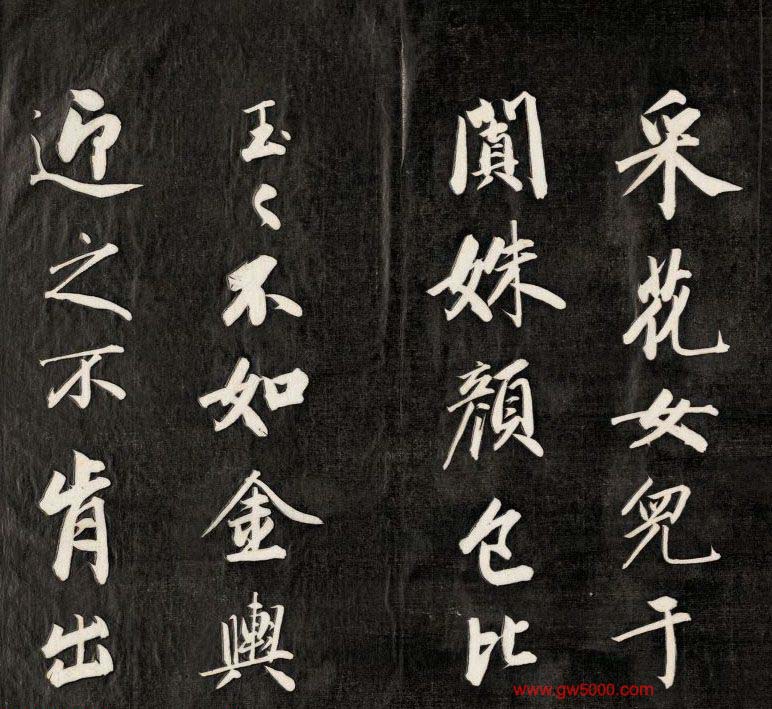 采花女兒于
闐姝顏色比
玉〻不如金輿
迎之不肯出
www.gw5000.com